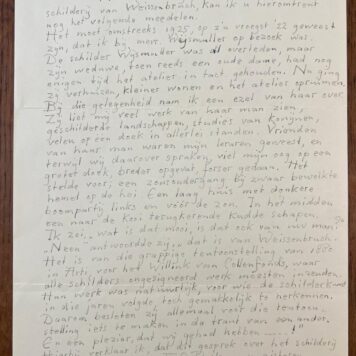 schilderij van Weissenbruch, kan ik u hieromtrent
nog het volgende meedelen.
Het moet omstreeks 1925, op z'n vroegst '22 geweest
zijn, dat ik bij mevr. Wysmuller op bezoek was.
De schilder Wysmuller was al overleden, maar
zijn weduwe, toen reeds een oude dame, had nog
enigen tijd het atelier in tact gehouden. Nu ging
zij verhuizen, kleiner wonen en het atelier opruimen.
Bij die gelegenheid nam ik een ezel van haar over.
Zij liet mij veel werk van haar man zien,
geschilderde landschappen, studies van konijnen,
velen op een doek in allerlei standen. Vrienden
van haar man waren mijn leraren geweest, en
terwijl wij daarover spraken, viel mijn oog op een
groter doek, breder opgevat, forser gedaan. Het
stelde voor; een zonsondergang bij zwaar bewolkte
hemel op de hei. Een laag huis met donkere
boompartij links en vóór de zon. In het midden
een naar de kooi terugkerende kudde schapen.
Ik zei.. wat is dat mooi, is dat ook van uw man?
"Neen" antwoordde zij.. dat is van Weissenbruch.
Het is van die grappige tentoonstelling van
in Arti, voor het Willink van Collenfonds, waar
alle schilders ongesigneerd werk moesten inzenden.
Hun werk was natuurlijk, voor wie de schilderkunst
in die jaren volgde, toch gemakkelijk te herkennen.
Daarom besloten zij allemaal voor die tentoon-
stelling iets te maken in de trant van een ander.
En een plezier, dat wij gehad hebben ......!"
verklaar ik, dat dit gesprek over het schilderij